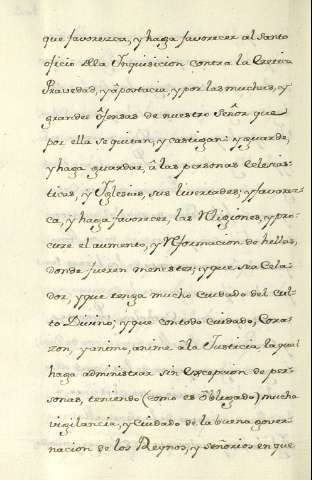 que favorezca, y haga favorecer al santo
oficio della Ynquisicion contra la Eretica
Pravedad, y âpostacia, y por las muchas, y
grandes ôfensas de nuestro Señor que
por ella se quitan, y castigan: y guarde,
y haga guardar, â las personas Eclesias-
ticas, y Yglesias, sus livertades; y favorez-
ca, y haga favorecer, las Religiones, y pro-
cure el aumento, y Reformacion de hellas,
donde fueren menester; y que sea Cela-
dor, y que tenga mucho cuidado del cul-
to Divino; y que con todo cuidado, Cora-
zon, y animo, anime â la Justicia, la qual
haga administrar sin excepcion de per-
sonas, teniendo (como es ôbligado) mucha
vigilancia, y Cuidado de la buena gover-
nacion de los Reynos, y señorios en que